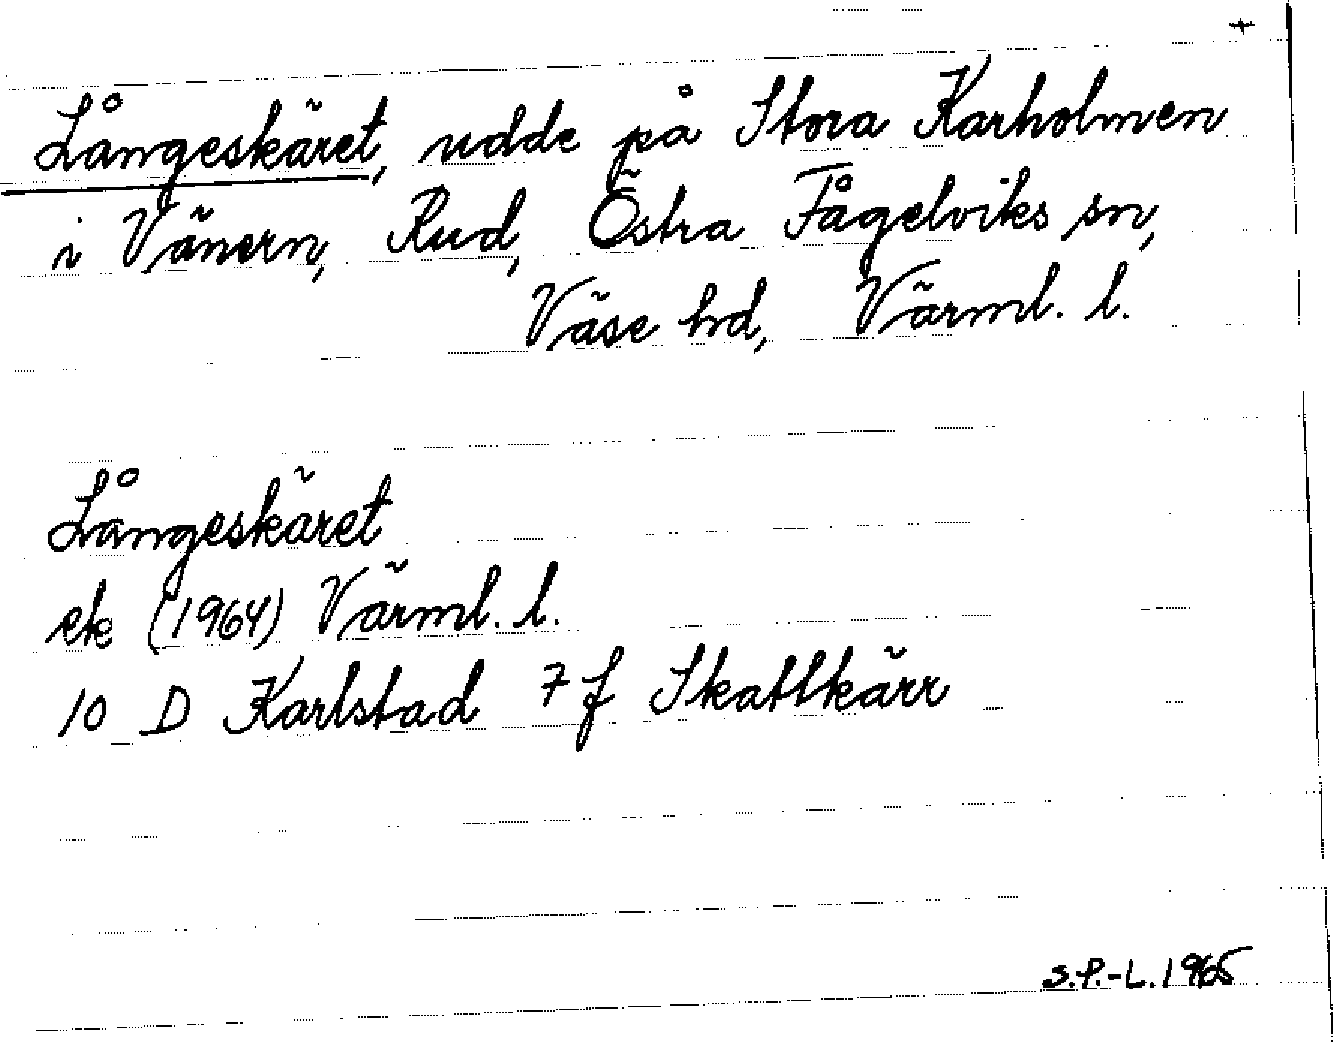 +
Långeskäret, udde på Stora Karholmen
i Vänern, Rud, Östra Fågelviks sn,
Väse hd, Värml. l.
Långeskäret
ek (1964) Värml. l.
10 D Karlstad 7 f Skattkärr
S.P.-L. 1965